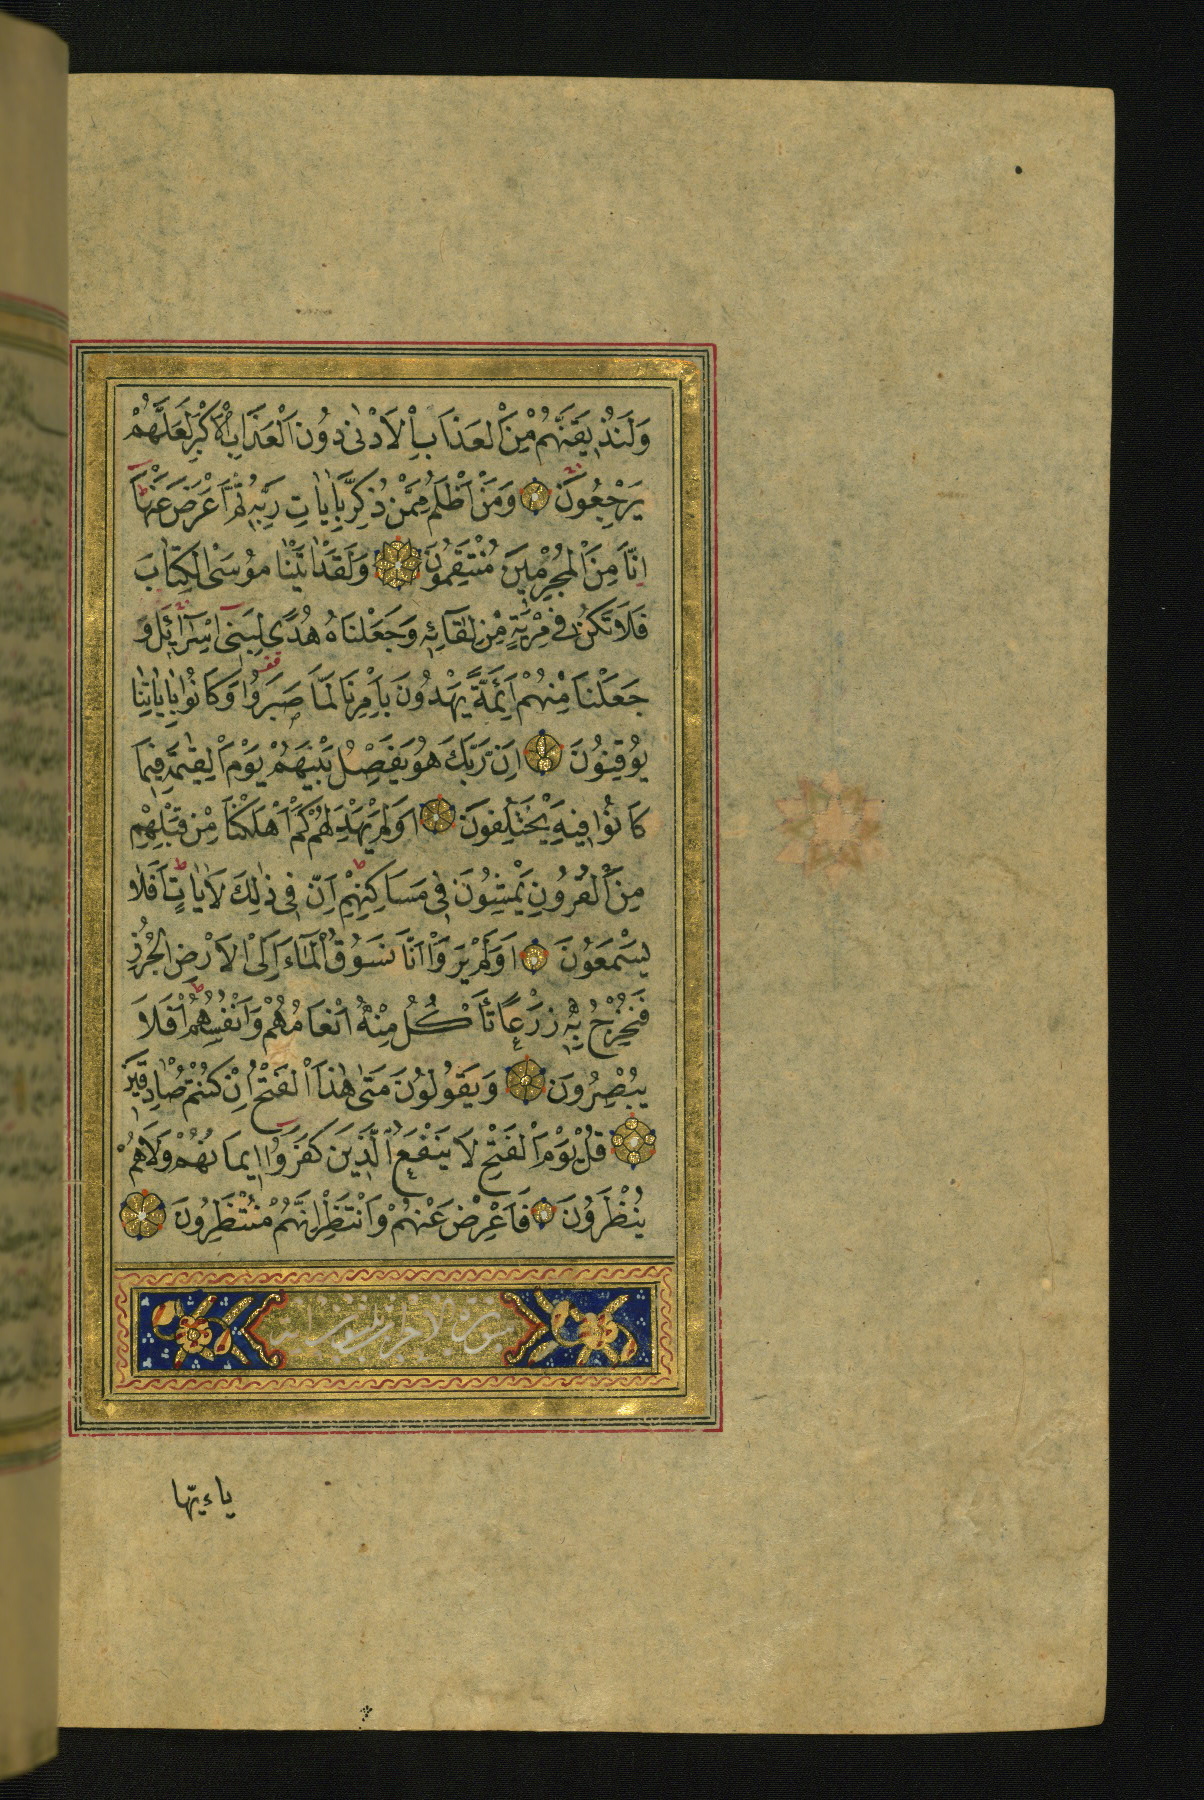 وَلَنُذِيقَنَّهُمْ مِنَ الْعَذَابِ الْاَدْنٰى دُونَ الْعَذَابِ الْاَكْبَرِ لَعَلَّهُمْ
يَرْجِعُونَ وَمَنْ اَظْلَمُ مِمَّنْ ذُكِّرَ بِاٰيَاتِ رَبِّهِ ثُمَّ اَعْرَضَ عَنْهَا
اِنَّا مِنَ الْمُجْرِمِينَ مُنْتَقِمُونَ وَلَقَدْ اٰتَيْنَا مُوسَى الْكِتَابَ
فَلَا تَكُنْ فِي مِرْيَةٍ مِنْ لِقَائِهِ وَجَعَلْنَاهُ هُدًى لِبَنِي اِسْرَائِيلَ وَ
جَعَلْنَا مِنْهُمْ اَئِمَّةً يَهْدُونَ بِاَمْرِنَا لَمَّا صَبَرُوا وَكَانُوا بِاٰيَاتِنَا
يُوقِنُونَ اِنَّ رَبَّكَ هُوَ يَفْصِلُ بَيْنَهُمْ يَوْمَ الْقِيٰمَةِ فِيمَا
كَانُوا فِيهِ يَخْتَلِفُونَ اَوَلَمْ يَهْدِ لَهُمْ كَمْ اَهْلَكْنَا مِنْ قَبْلِهِمْ
مِنَ الْقُرُونِ يَمْشُونَ فِي مَسَاكِنِهِمْ اِنَّ فِي ذٰلِكَ لَاٰيَاتٍ اَفَلَا
يَسْمَعُونَ اَوَلَمْ يَرَوْا اَنَّا نَسُوقُ الْمَاءَ اِلَى الْاَرْضِ الْجُرُزِ
فَنُخْرِجُ بِهِ زَرْعًا تَاْكُلُ مِنْهُ اَنْعَامُهُمْ وَاَنْفُسُهُمْ اَفَلَا
يُبْصِرُونَ وَيَقُولُونَ مَتٰى هٰذَا الْفَتْحُ اِنْ كُنْتُمْ صَادِقِينَ
قُلْ يَوْمَ الْفَتْحِ لَا يَنْفَعُ الَّذِينَ كَفَرُوا اِيمَانُهُمْ وَلَا هُمْ
يُنْظَرُونَ فَاَعْرِضْ عَنْهُمْ وَانْتَظِرْ اِنَّهُمْ مُنْتَظِرُونَ
ياءيّها